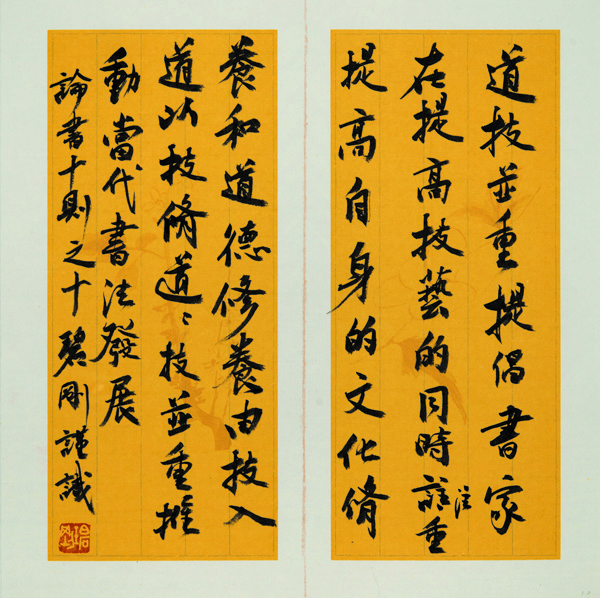 道技並重提倡書家
在提高技藝的同時註重
注
提高自身的文化脩
養和道德修養由技入
道以技脩道〻技並重推
動當代書法發展
論書十則之十碧剛謹識